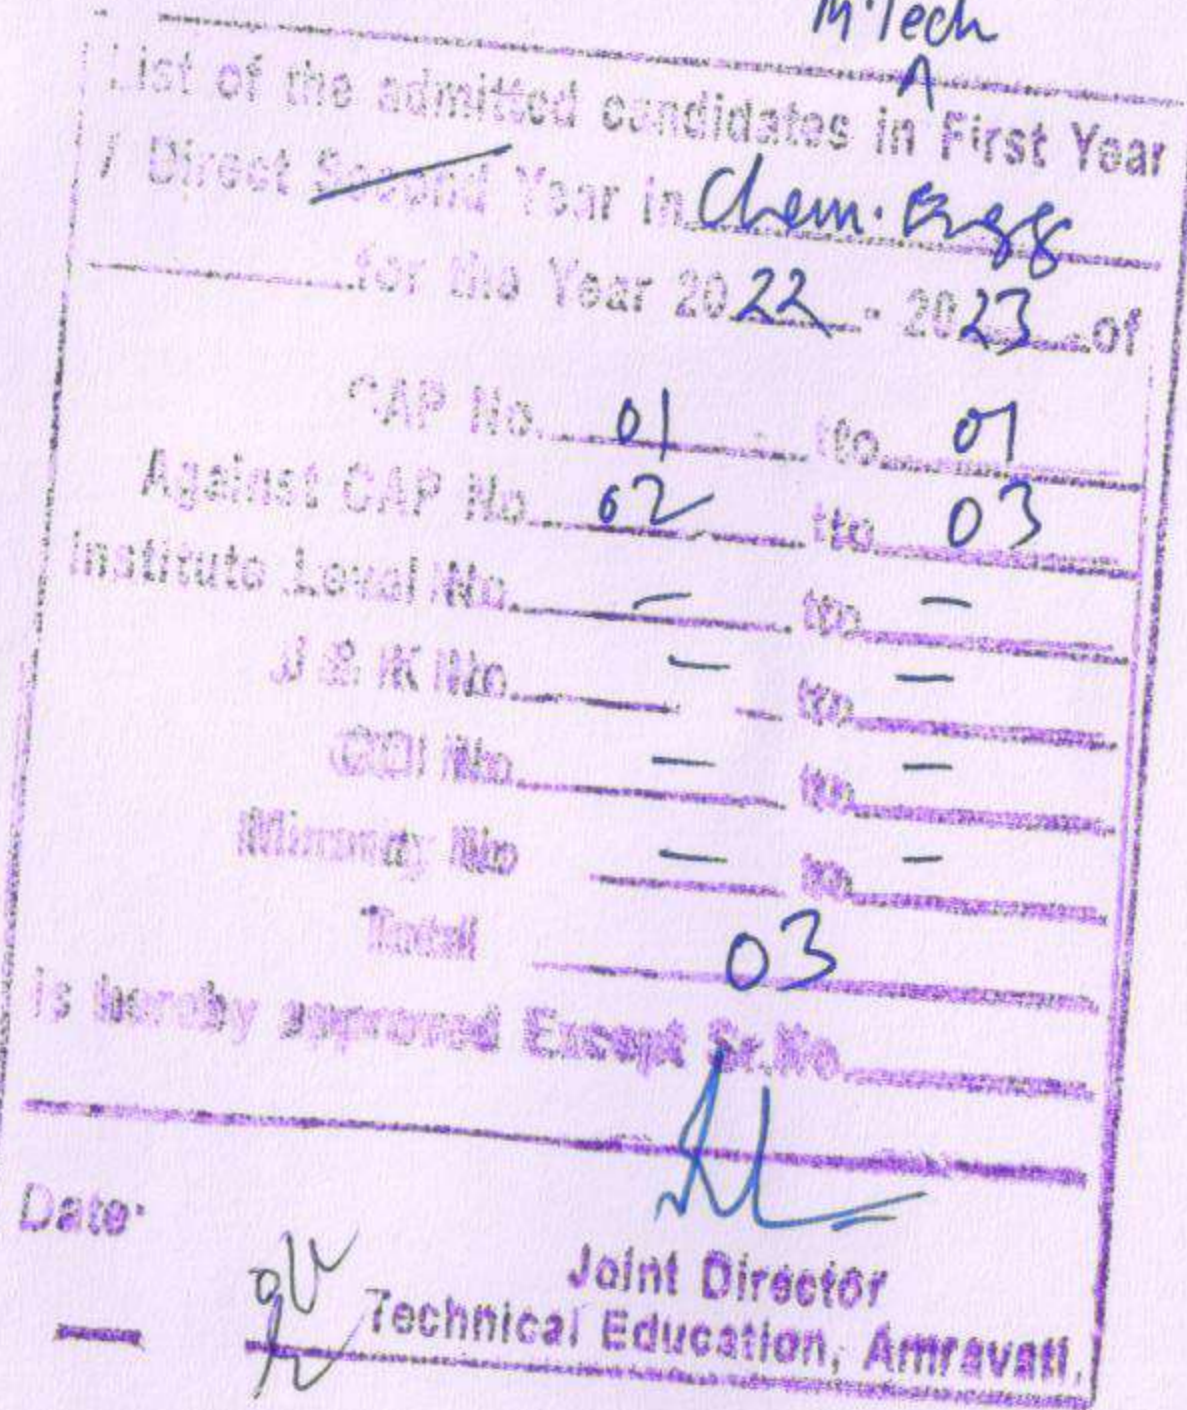 M.Tech
List of the admitted candidates in ^ First Year
/ Direct Second Year in Chem. Engg
for the Year 2022 - 2023 of
CAP No. 01 to 01
Against CAP No. 02 to 03
Institute Level No. — to —
J & K No. — to —
GOI No. — to —
Minority No — to —
Total 03
is hereby approved Except Sr.No.
Date:
Joint Director
Technical Education, Amravati.